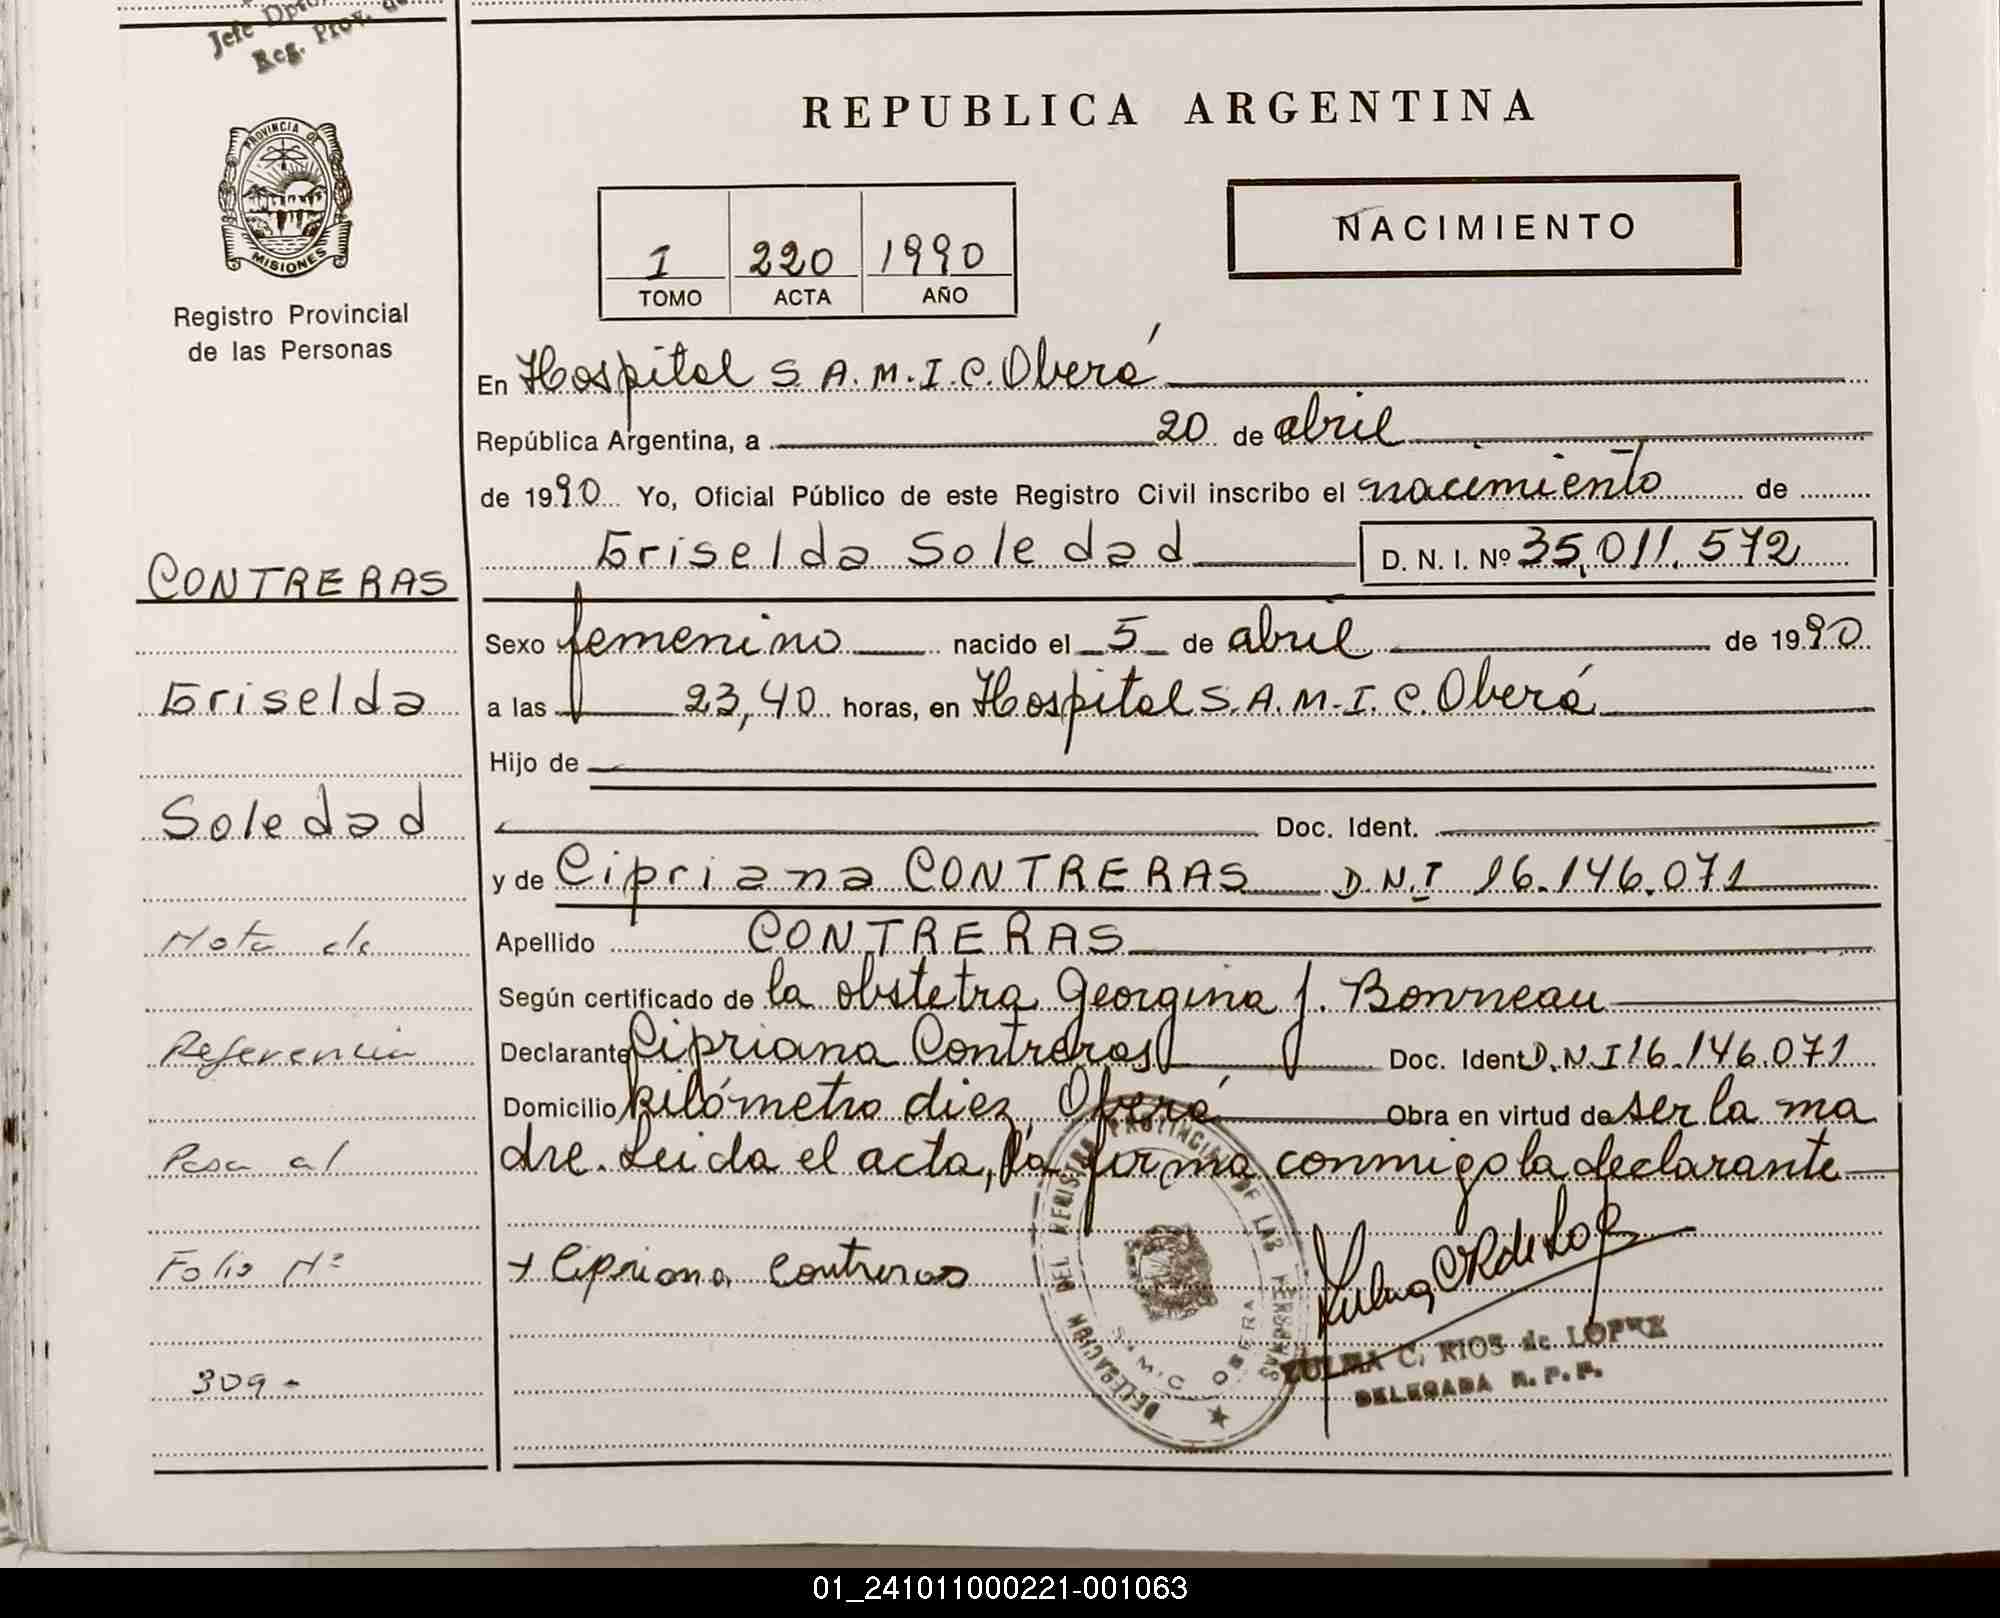 Jefe Dpto.
Reg. Prov. de
PROVINCIA DE
MISIONES
Registro Provincial
de las Personas
CONTRERAS
Griselda
Soledad
Nota de
Referencia
Pasa al
Folio Nº
309-
REPUBLICA ARGENTINA
NACIMIENTO
1 220 1990
TOMO ACTA AÑO
En Hospital S.A.M.I.C. Oberá
República Argentina, a 20 de abril
de 1990 Yo, Oficial Público de este Registro Civil inscribo el nacimiento de
Griselda Soledad D. N. I. Nº 35,011.572
Sexo femenino nacido el 5 de abril de 1990
a las 23,40 horas, en Hospital S.A.M.I.C. Oberá
Hijo de
Doc. Ident.
y de Cipriana CONTRERAS D.N.I 16.146.071
Apellido CONTRERAS
Según certificado de la obstetra Georgina J. Bonneau
Declarante Cipriana Contreras Doc. Ident. D.N.I 16.146.071
Domicilio kilómetro diez, Oberá Obra en virtud de ser la ma
dre. Leida el acta, la firma conmigo la declarante
+ Cipriana Contreras
DELEGACION DEL REGISTRO PROVINCIAL DE LAS PERSONAS
S.M.C OBERA
ZULMA C. RIOS de LOPEZ
DELEGADA R. P. P.
01_241011000221-001063